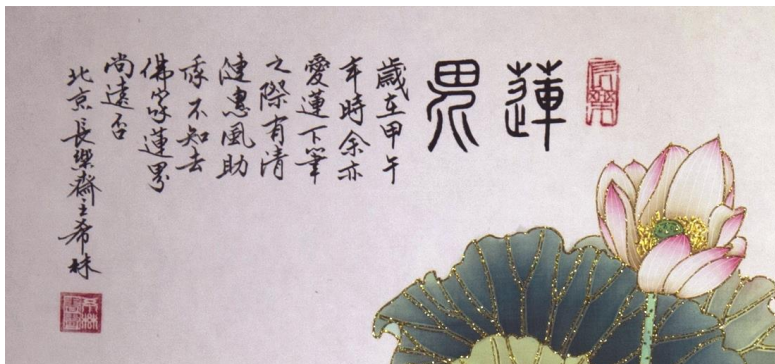 蓮界
歲在甲午
年時余亦
愛蓮下筆
之際有清
漣惠風助
我不知去
佛家蓮界
尚遠否
北京長樂齋主希林
長樂